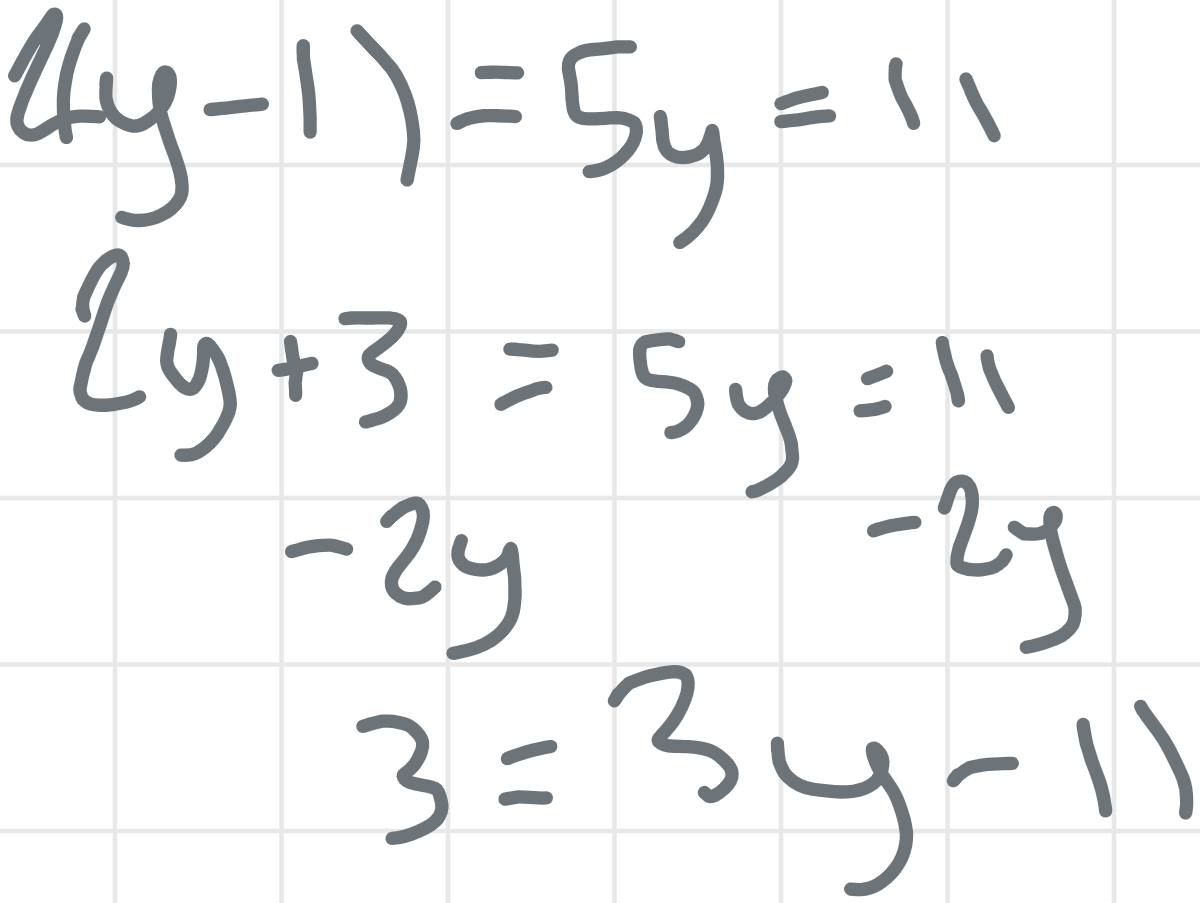 2(y-1) = 5y = 11
2y+3 = 5y = 11
-2y -2y
3 = 3y - 11